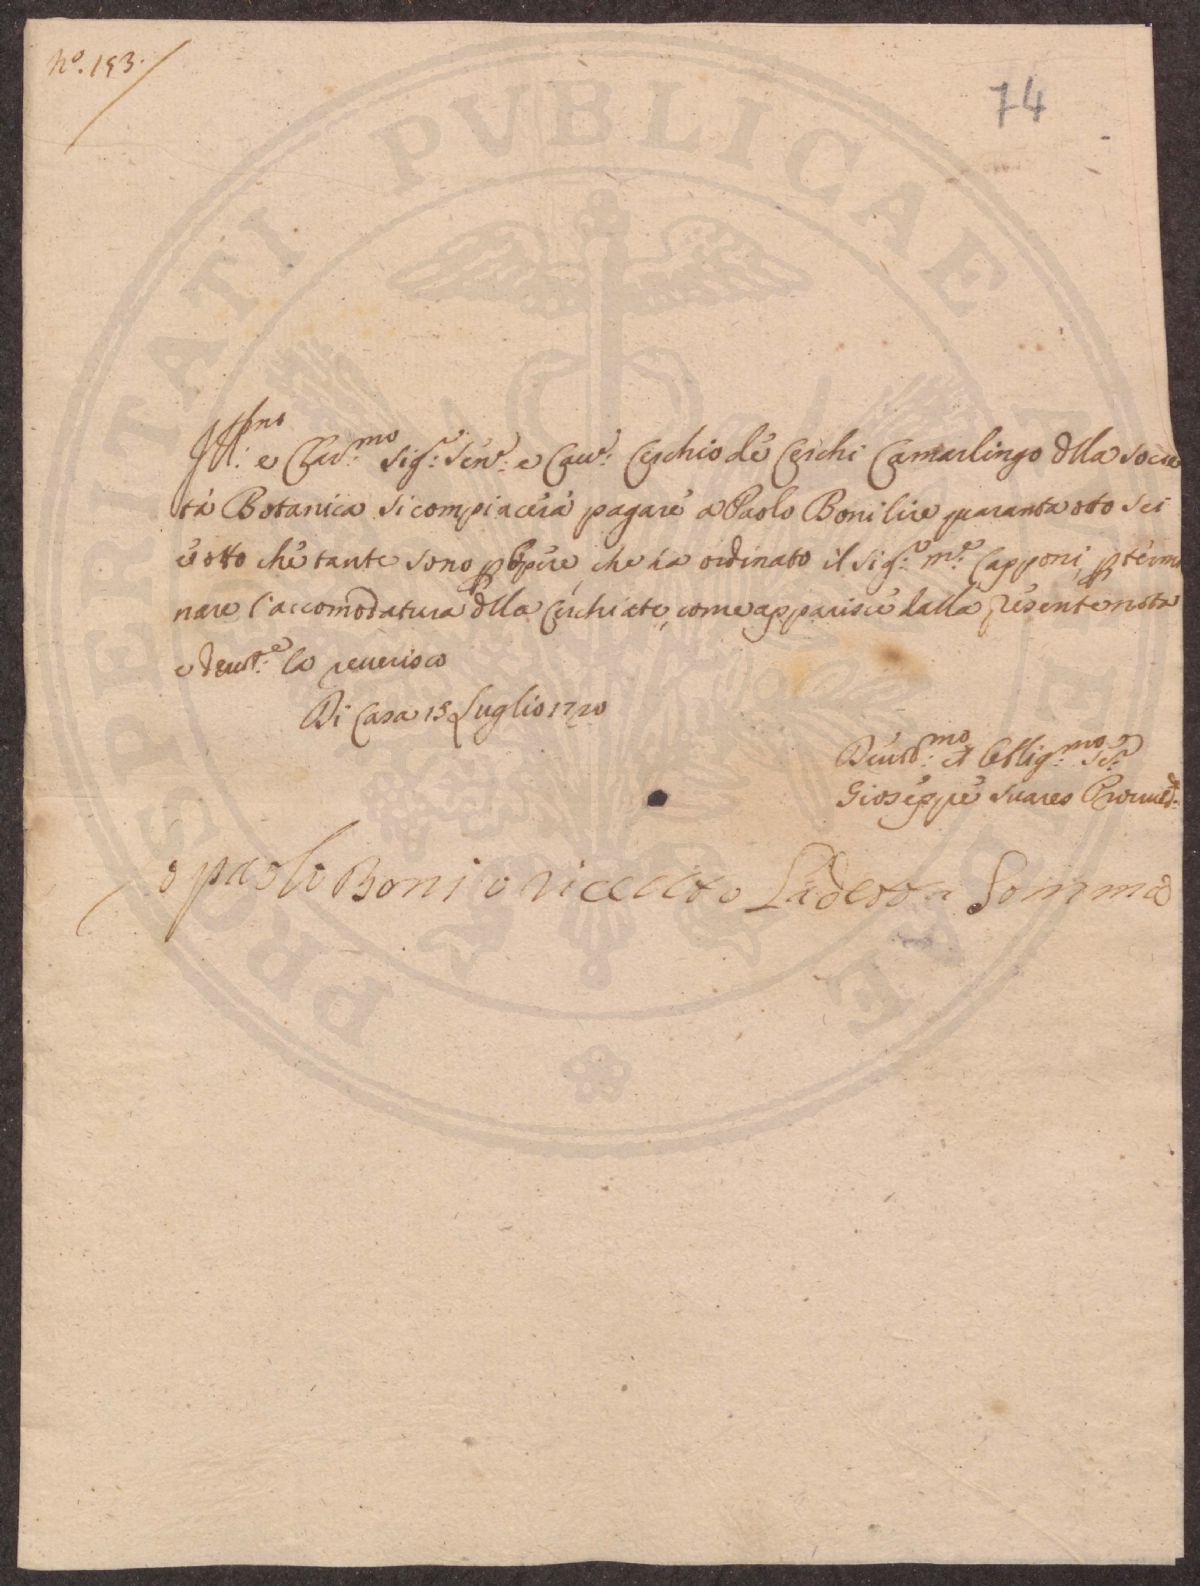 N.º 153.
74
Ill:mo e Clar:mo Sig:r Sen:r e Cav:r Cerchio de Cerchi Camarlingo dlla Socie
tà Botanica si compiacerà pagare a Paolo Boni lire quaranta otto sei
e otto che tante sono p opere, che ha ordinato il Sig:r M:e Capponi, p termi
nare l'accomodatura dlla Cerchiate, come apparisce dalla presente nota
e deuot:e lo reuerisco
Di Casa 15 Luglio 1720
Deuot:mo et Obblig:mo Se:r
Gioseppe Suares Proued:r
Io paolo Boni o riceuto La detta somma
PROSPERITATI PVBLICAE